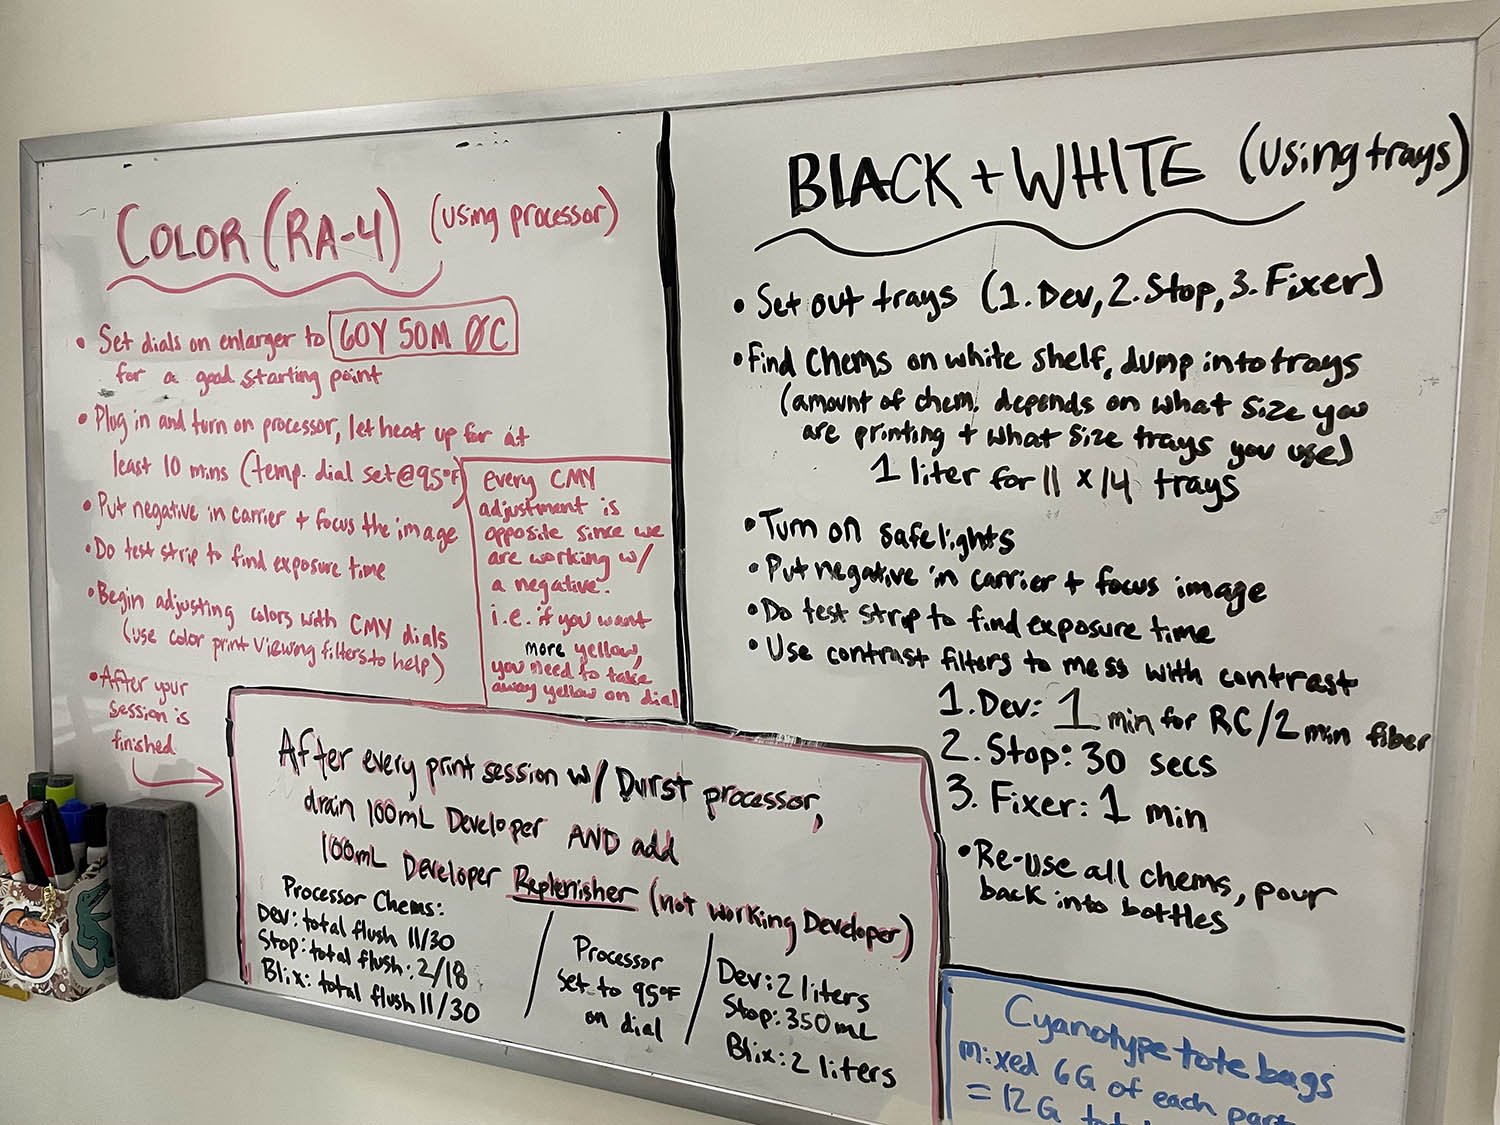 COLOR (RA-4) (using processor)
• Set dials on enlarger to 60Y 50M 0C
for a good starting point
• Plug in and turn on processor, let heat up for at
least 10 mins (temp. dial set @ 95°F)
• Put negative in carrier + focus the image
• Do test strip to find exposure time
• Begin adjusting colors with CMY dials
(use color print viewing filters to help)
• After your
session is
finished
every CMY
adjustment is
opposite since we
are working w/
a negative.
i.e. if you want
more yellow,
you need to take
away yellow on dial
After every print session w/ Durst processor,
drain 100mL Developer AND add
100mL Developer Replenisher (not working Developer)
Processor Chems:
Dev: total flush 11/30
Stop: total flush: 2/18
Blix: total flush 11/30
Processor
set to 95°F
on dial
Dev: 2 liters
Stop: 350mL
Blix: 2 liters
BLACK + WHITE (using trays)
• Set out trays (1. Dev, 2. Stop, 3. Fixer)
• Find chems on white shelf, dump into trays
(amount of chem. depends on what size you
are printing + what size trays you use)
1 liter for 11 x 14 trays
• Turn on safelights
• Put negative in carrier + focus image
• Do test strip to find exposure time
• Use contrast filters to mess with contrast
1. Dev: 1 min for RC/2 min fiber
2. Stop: 30 secs
3. Fixer: 1 min
• Re-use all chems, pour
back into bottles
Cyanotype tote bags
mixed 6G of each part
= 12G